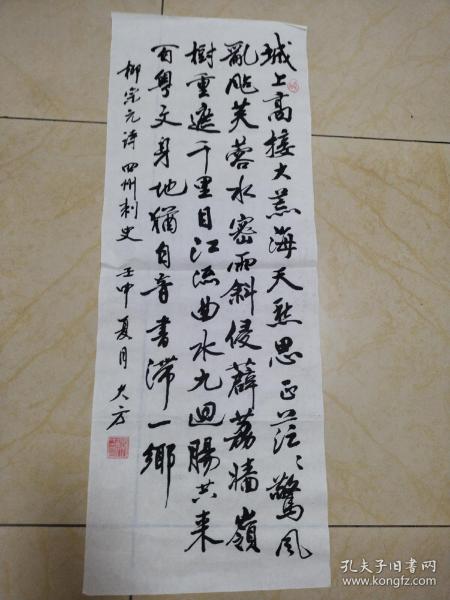 城上高接大荒海天愁思正茫〻驚風
亂飐芙蓉水密雨斜侵薜荔牆嶺
樹重遮千里目江流曲水九迴腸共来
百粤文身地猶自音書滞一鄉
柳宗元诗 四州刺史 壬申夏月 大方
孔夫子旧书网
www.kongfz.com